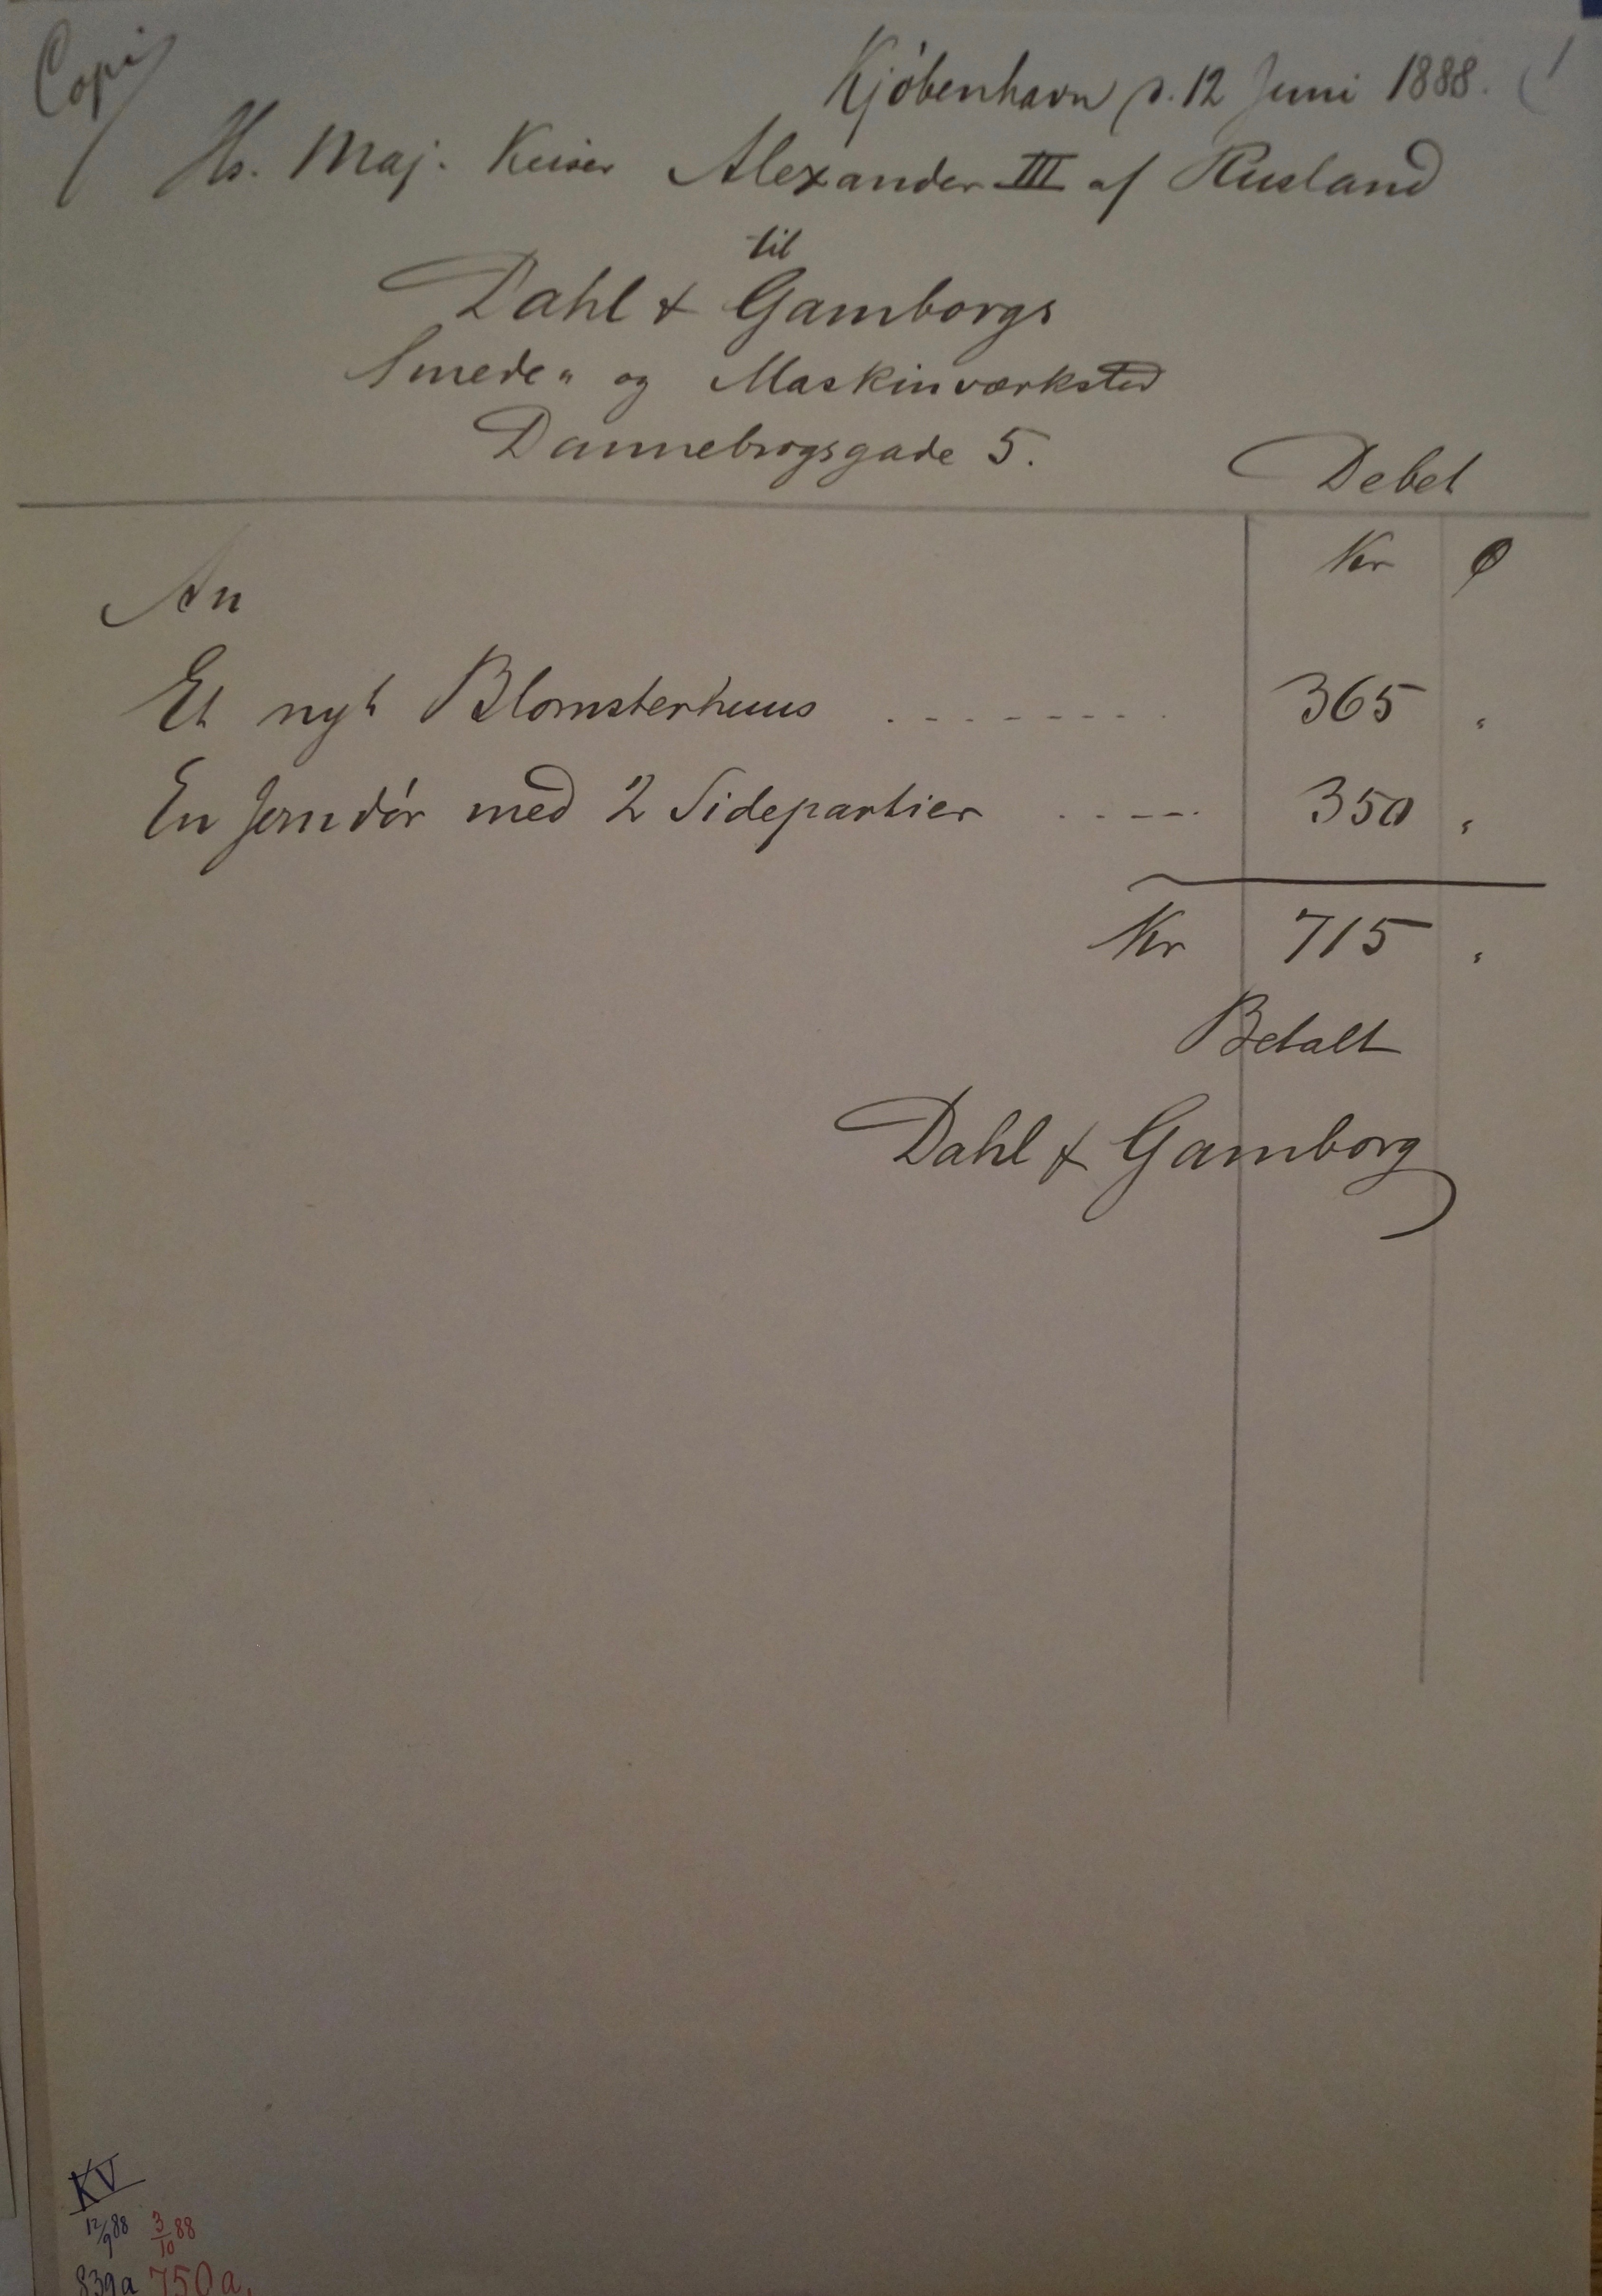 Copi
Kjöbenhavn d. 12 Juni 1888.
Hs. Maj. Keiser Alexander III af Rusland
til
Dahl & Gamborgs
Smede " og Maskinværksted
Dannebrogsgade 5.
Debet
Kr Ø
An
Et nyt Blomsterhuus - - - - - - - - 365 "
En Jerndör med 2 Sidepartier - - - - - 350 "
Kr 715 "
Betalt
Dahl & Gamborg
KV
12/9 88 3/10 88
839a 750a.